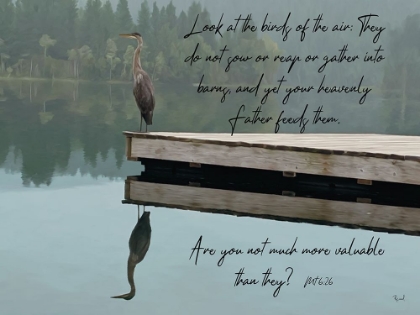 Look at the birds of the air: They
do not sow or reap or gather into
barns, and yet your heavenly
Father feeds them.
Are you not much more valuable
than they? Mt 6:26